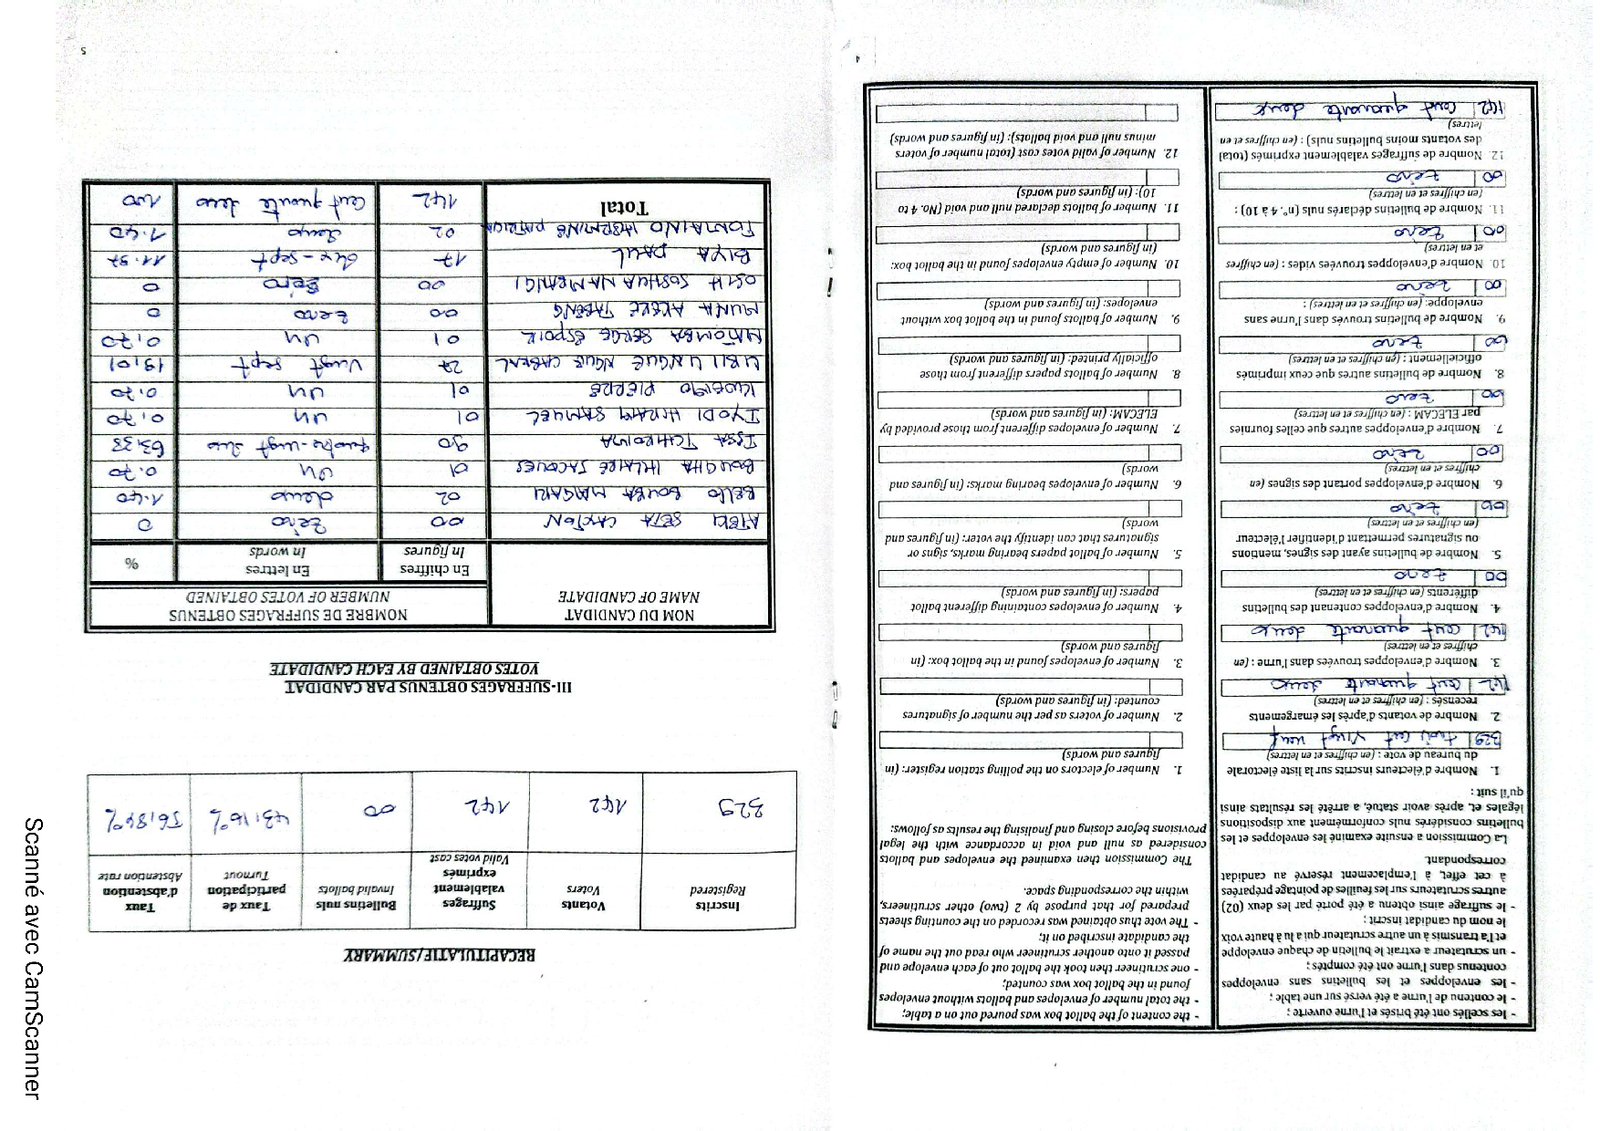 - les scellés ont été brisés et l'urne ouverte ;
- le contenu de l'urne a été versé sur une table ;
- les enveloppes et les bulletins sans enveloppes
contenus dans l'urne ont été comptés ;
- un scrutateur a extrait le bulletin de chaque enveloppe
et l'a transmis à un autre scrutateur qui a lu à haute voix
le nom du candidat inscrit ;
- le suffrage ainsi obtenu a été porté par les deux (02)
autres scrutateurs sur les feuilles de pointage préparées
à cet effet, à l'emplacement réservé au candidat
correspondant.
La Commission a ensuite examiné les enveloppes et les
bulletins considérés nuls conformément aux dispositions
légales et, après avoir statué, a arrêté les résultats ainsi
qu'il suit :
1. Nombre d'électeurs inscrits sur la liste électorale
du bureau de vote : (en chiffres et en lettres)
329 trois cent vingt neuf
2. Nombre de votants d'après les émargements
recensés : (en chiffres et en lettres)
142 cent quarante deux
3. Nombre d'enveloppes trouvées dans l'urne : (en
chiffres et en lettres)
142 cent quarante deux
4. Nombre d'enveloppes contenant des bulletins
différents (en chiffres et en lettres)
00 zero
5. Nombre de bulletins ayant des signes, mentions
ou signatures permettant d'identifier l'électeur
(en chiffres et en lettres)
00 zéro
6. Nombre d'enveloppes portant des signes (en
chiffres et en lettres)
00 zéro
7. Nombre d'enveloppes autres que celles fournies
par ELECAM : (en chiffres et en lettres)
00 zero
8. Nombre de bulletins autres que ceux imprimés
officiellement : (en chiffres et en lettres)
00 zero
9. Nombre de bulletins trouvés dans l'urne sans
enveloppe: (en chiffres et en lettres) :
00 zero
10. Nombre d'enveloppes trouvées vides : (en chiffres
et en lettres)
00 zéro
11. Nombre de bulletins déclarés nuls (n°. 4 à 10) :
(en chiffres et en lettres)
00 zéro
12. Nombre de suffrages valablement exprimés (total
des votants moins bulletins nuls) : (en chiffres et en
lettres)
142 cent quarante deux
- the content of the ballot box was poured out on a table;
- the total number of envelopes and ballots without envelopes
found in the ballot box was counted;
- one scrutineer then took the ballot out of each envelope and
passed it onto another scrutineer who read out the name of
the candidate inscribed on it;
- The vote thus obtained was recorded on the counting sheets
prepared for that purpose by 2 (two) other scrutineers,
within the corresponding space.
The Commission then examined the envelopes and ballots
considered as null and void in accordance with the legal
provisions before closing and finalising the results as follows:
1. Number of electors on the polling station register: (in
figures and words)
2. Number of voters as per the number of signatures
counted: (in figures and words)
3. Number of envelopes found in the ballot box: (in
figures and words)
4. Number of envelopes containing different ballot
papers: (in figures and words)
5. Number of ballot papers bearing marks, signs or
signatures that can identify the voter: (in figures and
words)
6. Number of envelopes bearing marks: (in figures and
words)
7. Number of envelopes different from those provided by
ELECAM: (in figures and words)
8. Number of ballots papers different from those
officially printed: (in figures and words)
9. Number of ballots found in the ballot box without
envelopes: (in figures and words)
10. Number of empty envelopes found in the ballot box:
(in figures and words)
11. Number of ballots declared null and void (No. 4 to
10): (in figures and words)
12. Number of valid votes cast (total number of voters
minus null and void ballots): (in figures and words)
4
RECAPITULATIF/SUMMARY
Inscrits Registered
Votants Voters
Suffrages valablement exprimés Valid votes cast
Bulletins nuls Invalid ballots
Taux de participation Turnout
Taux d'abstention Abstention rate
329 142 142 00 43,16% 56,84%
III- SUFFRAGES OBTENUS PAR CANDIDAT
VOTES OBTAINED BY EACH CANDIDATE
NOM DU CANDIDAT
NAME OF CANDIDATE
NOMBRE DE SUFFRAGES OBTENUS
NUMBER OF VOTES OBTAINED
En chiffres In figures
En lettres In words
%
ATEKI SETA CAXTON 00 Zéro 0
BELLO BOUBA MAIGARI 02 deux 1.40
BOUGHA HILAIRE JACQUES 01 un 0.70
ISSA TCHIROMA 90 quatre-vingt dix 63,38
IYODI HIRAM SAMUEL 01 un 0,70
KWEMO PIERRE 01 un 0,70
LIBII LI NGUE NGUE CABRAL 27 vingt sept 19,01
MATOMBA SERGE ESPOIR 01 un 0,70
MUNA AKERE TABENG 00 zero 0
OSIH JOSHUA NAMBANGI 00 zéro 0
BIYA PAUL 17 dix-sept 11.97
TOMAINO HERMINE PATRICIA 02 deux 1.40
Total 142 Cent quarante deux 100
5
Scanné avec CamScanner